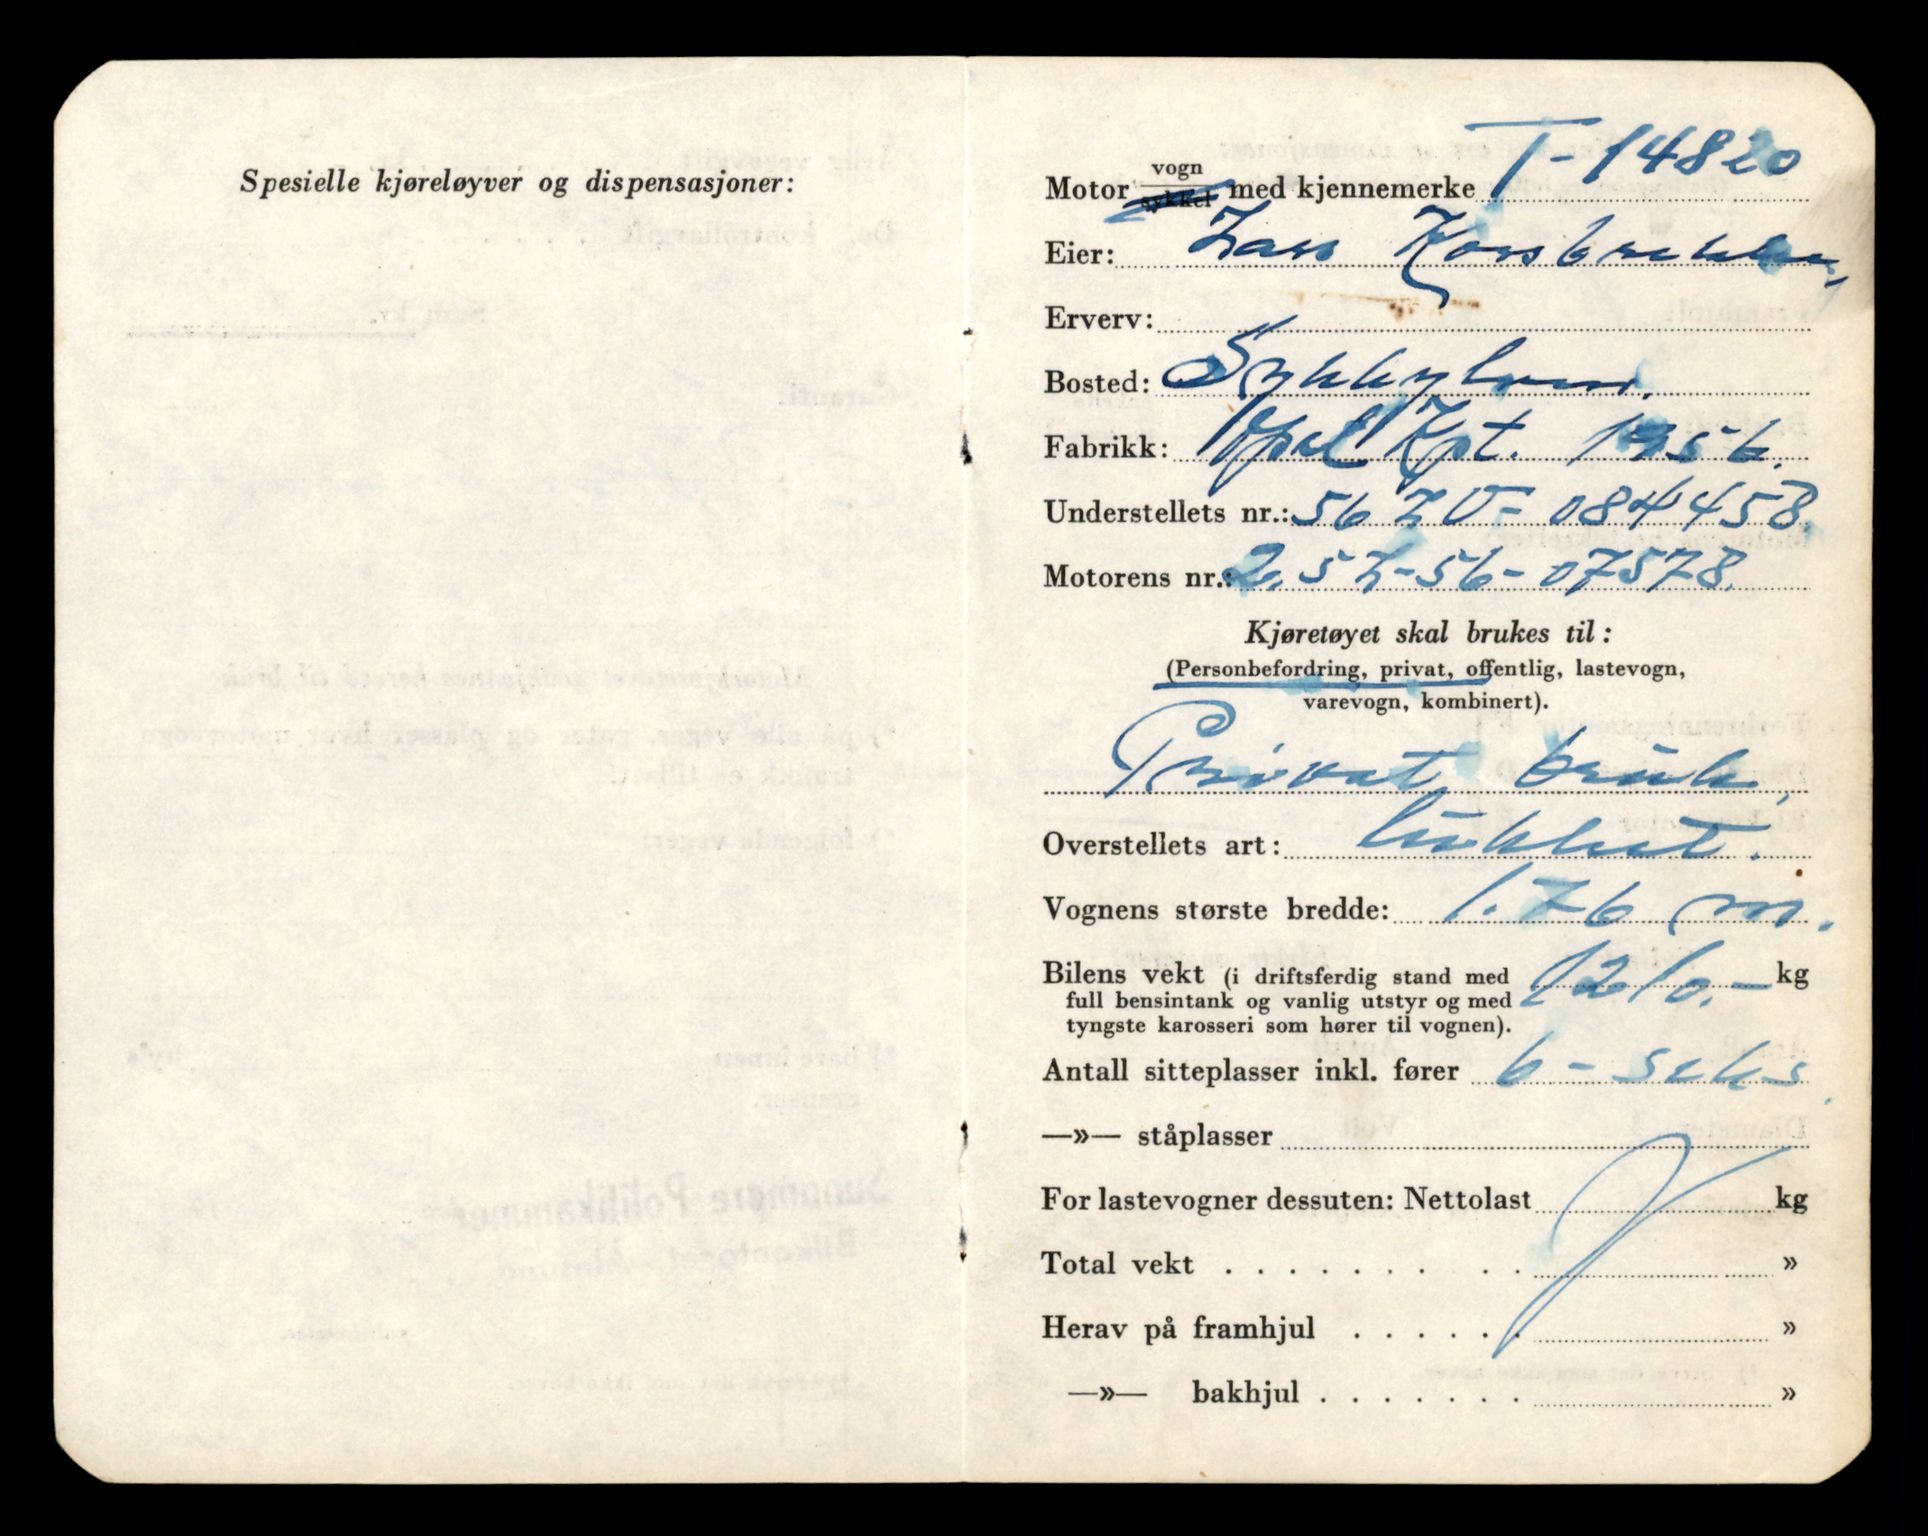 Spesielle kjøreløyver og dispensasjoner:
Motor vogn sykkel med kjennemerke T-14820
Eier: Lars Korsbrekke,
Erverv:
Bosted: Sykkylven.
Fabrikk: Opel Kpt. 1956.
Understellets nr.: 56 LV-084458.
Motorens nr.: 2.5L-56-07578.
Kjøretøyet skal brukes til:
(Personbefordring, privat, offentlig, lastevogn,
varevogn, kombinert).
Privat bruk,
Overstellets art: lukket.
Vognens største bredde: 1.76 m.
Bilens vekt (i driftsferdig stand med 1210.- kg
full bensintank og vanlig utstyr og med
tyngste karosseri som hører til vognen).
Antall sitteplasser inkl. fører 6 - seks.
—»— ståplasser
For lastevogner dessuten: Nettolast kg
Total vekt . . . . . . . . . . »
Herav på framhjul . . . . . . »
—»— bakhjul . . . . . . . »